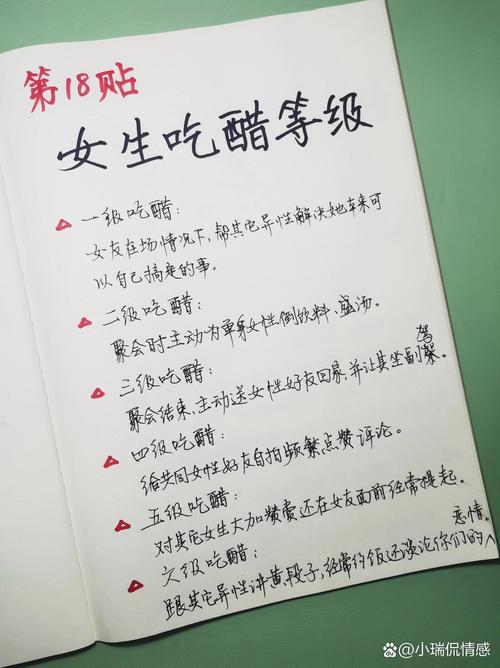 第18贴
女生吃醋等级
一级吃醋:
女友在场情况下,帮其它异性解决她本来可
以自己搞定的事。
二级吃醋:
聚会时主动为单身女性倒饮料、盛汤。
三级吃醋:
聚会结束,主动送女性好友回家,并让其坐副驾。
四级吃醋:
给共同女性好友自拍频繁点赞评论。
五级吃醋:
对其它女生大加赞赏还在女友面前经常提起。
六级吃醋:
跟其它异性讲黄段子,经常约饭还谈论你们的恋情。
@小瑞侃情感